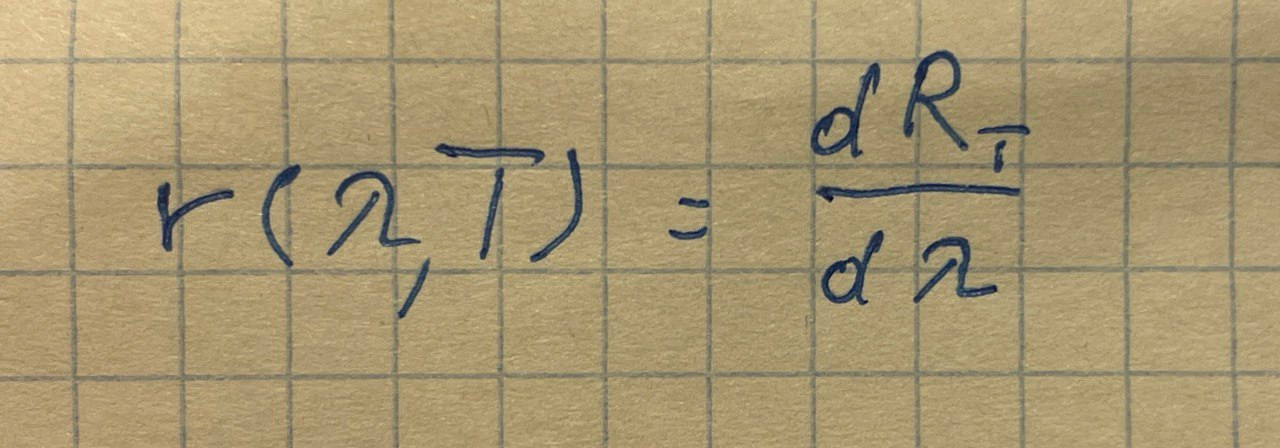 r(λ,T) = dR_T/dλ